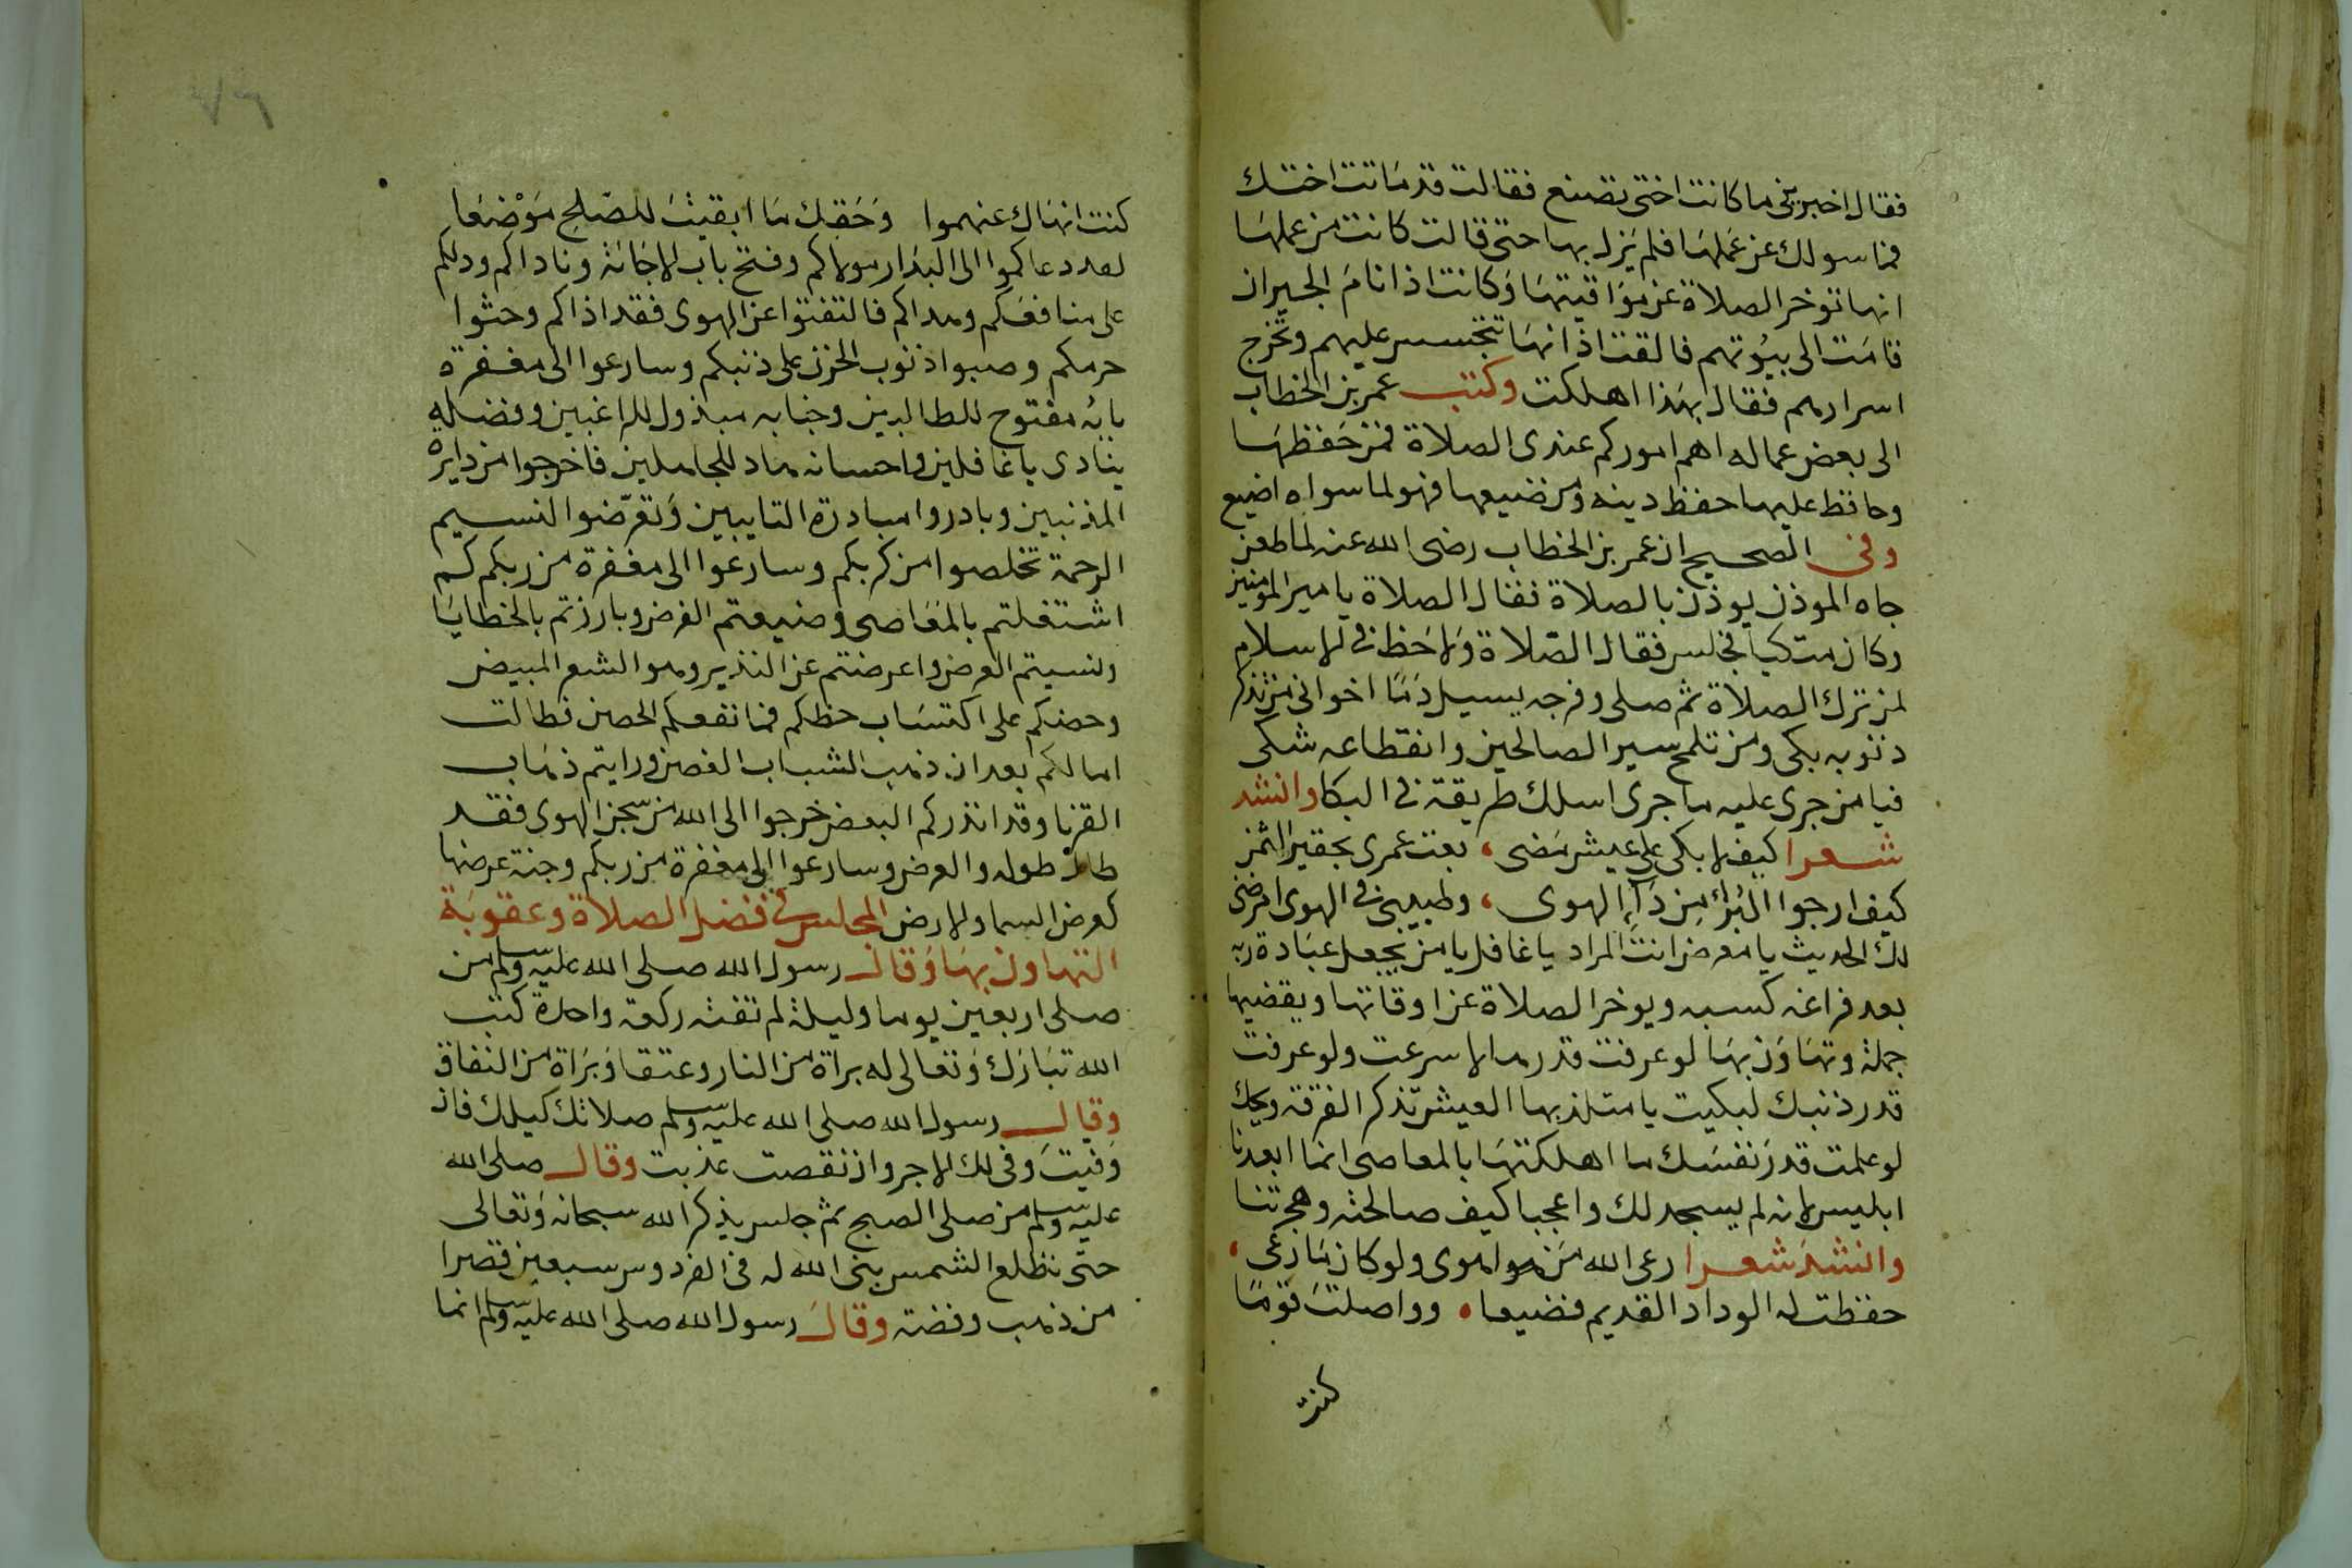 فقال اخبرينى ما كانت اختى تصنع فقالت قد ماتت اختك
فما سولك عن عملها فلم يزل بها حتى قالت كانت من عملها
انها توخر الصلاة عن مواقيتها وكانت اذا نام الجيران
قامت الى بيوتهم فالقت اذانها تتجسس عليهم وتخرج
اسرارهم فقال بهذا اهلكت وكتب عمر بن الخطاب
الى بعض عماله اهم اموركم عندى الصلاة فمن حفظها
وحافظ عليها حفظ دينه ومن ضيعها فهو لما سواه اضيع
وفى الصحيح ان عمر بن الخطاب رضى الله عنه لما طعن
جاه الموذن يوذن بالصلاة فقال الصلاة يا مير المومنين
وكان متكيا فجلس فقال الصلاة ولا حظ فى الاسلام
لمن ترك الصلاة ثم صلى وفرجه يسيل دما اخوانى من تذكر
ذنوبه بكى ومن تلمح سير الصالحين وانقطاعه شكى
فيا من جرى عليه ما جرى اسلك طريقة فى البكا وانشد
شعرا كيف لا بكى على عيش مضى ، بعت عمرى بحقير الثمن
كيف ارجوا البرا من دآء الهوى ، وطبيبى فى الهوى امرضنى
لك الحديث يا معرض انت المراد يا غافل يا من يجعل عبادة ربه
بعد فراغه كسبه ويوخر الصلاة عن اوقاتها ويقضيها
جملة وتهاون بها لو عرفت قدرها لاسرعت ولو عرفت
قدر ذنبك لبكيت يا متلذ بها العيش تذكر الفرقة ويحك
لو علمت قدر نفسك ما اهلكتها بالمعاصى انما ابعدنا
ابليس لانه لم يسجد لك واعجبا كيف صالحته وهجرتنا
وانشد شعرا رعى الله من هوا هوى ولو كان ما رعى ،
حفظت له الوداد القديم فضيعا • وواصلت قوما
كنت
كنت انهاك عنهموا وحقك ما ابقيت للصلح موضعا
لعد دعاكموا الى البدار مولاكم وفتح باب الاجابة وناداكم ودلكم
على منافعكم وهداكم فالتفتوا عن الهوى فقد اذاكم وحثوا
حرمكم وصبوا ذنوب الحزن على ذنبكم وسارعوا الى مغفرة
بابه مفتوح للطالبين وجنابه مبذول للراغبين وفضله
ينادى يا غافلين واحسانه ماد للجاهلين فاخرجوا من دايرة
المذنبين وبادروا مبادرة التايبين وتعرضوا النسيم
الرحمة تخلصوا من كربكم وسارعوا الى مغفرة من ربكم كم
اشتغلتم بالمعاصى وضيعتم الفرض وبارزتم بالخطايا
ونسيتم العرض واعرضتم عن النذير وهو الشعر المبيض
وحضكم على اكتساب حظكم فما نفعكم الحصن فطالت
امالكم بعد ان ذهب الشباب الغصن ورايتم ذهاب
القرنا وقد انذركم البعض خرجوا الى الله من سجن الهوى فقد
طال طوله والعرض وسارعوا الى مغفرة من ربكم وجنة عرضها
كعرض السما والارض المجلس فى فضل الصلاة وعقوبة
التهاون بها وقال رسول الله صلى الله عليه وسلم من
صلى اربعين يوما وليلة لم تفته ركعة واحدة كتب
الله تبارك وتعالى له براة من النار وعتقا وبراة من النفاق
وقال رسول الله صلى الله عليه وسلم صلاتك كيلك فان
وفيت وفى لك الاجر وان نقصت عذبت وقال صلى الله
عليه وسلم من صلى الصبح ثم جلس يذكر الله سبحانه وتعالى
حتى تطلع الشمس بنى الله له فى الفردوس سبعين قصرا
من ذهب وفضة وقال رسول الله صلى الله عليه وسلم انما